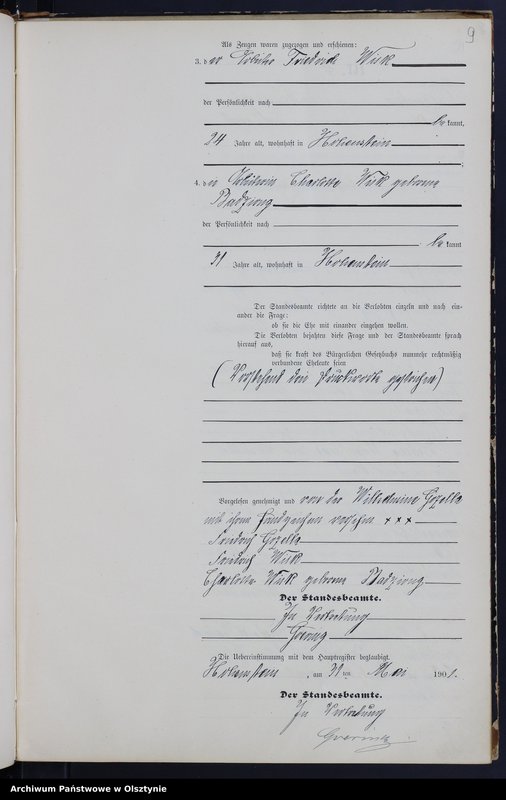 9
Als Zeugen waren zugezogen und erschienen:
3. der Friedrich Wiek
der Persönlichkeit nach
be kannt,
24 Jahre alt, wohnhaft in Hohenstein
4. d Charlotte Wiek geborene
Badziong
der Persönlichkeit nach
be kannt
31 Jahre alt, wohnhaft in Hohenstein
Der Standesbeamte richtete an die Verlobten einzeln und nach ein-
ander die Frage:
ob sie die Ehe mit einander eingehen wollen.
Die Verlobten bejahten diese Frage und der Standesbeamte sprach
hierauf aus,
daß sie kraft des Bürgerlichen Gesetzbuchs nunmehr rechtmäßig
verbundene Eheleute seien
(Vorstehend drei Druckworte gestrichen)
Vorgelesen genehmigt und von der Wilhelmine Gozella
mit ihrem Handzeichen versehen × × ×
Friedrich Gozella
Friedrich Wiek
Charlotte Wiek geborene Badziong
Der Standesbeamte.
In Vertretung
Goering
Die Uebereinstimmung mit dem Hauptregister beglaubigt.
Hohenstein, am 31 ten Mai 1901.
Der Standesbeamte.
In Vertretung
Goering
Archiwum Państwowe w Olsztynie